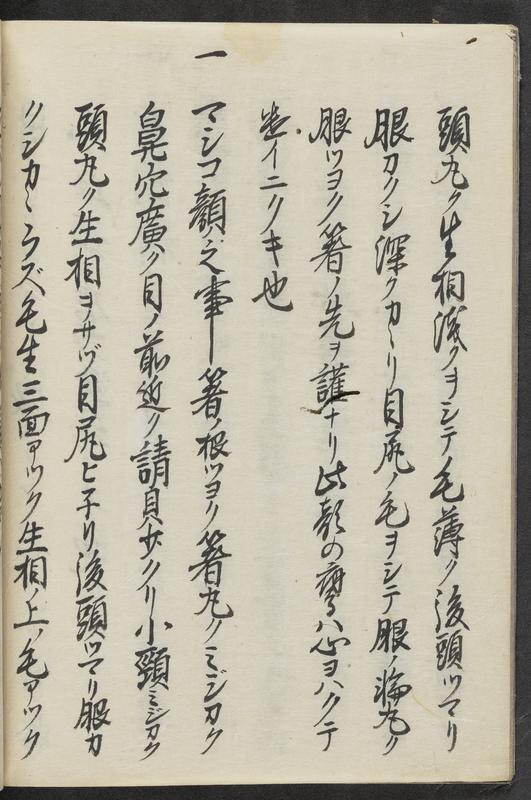 頭丸ク生相浅クヲシテ毛薄ク後頭ツマリ
眼カクシ深クカヽリ目尻ノ毛ヲシテ眼ノ輪丸ク
眼ツヨク箸ノ先ヲ護ナリ此顔の鷹ハ心ヨハクテ
イニクキ也
一 マシコ顔之事 箸ノ根ツヨク箸丸クミジカク
鼻穴廣ク目ノ前近ク請貝サクリ小頸ミジカク
頭丸ク生相ヲサヅ目尻ヒネリ後頭ツマリ眼カ
クシカヽラズ毛生三面アツク生相ノ上ノ毛アツク